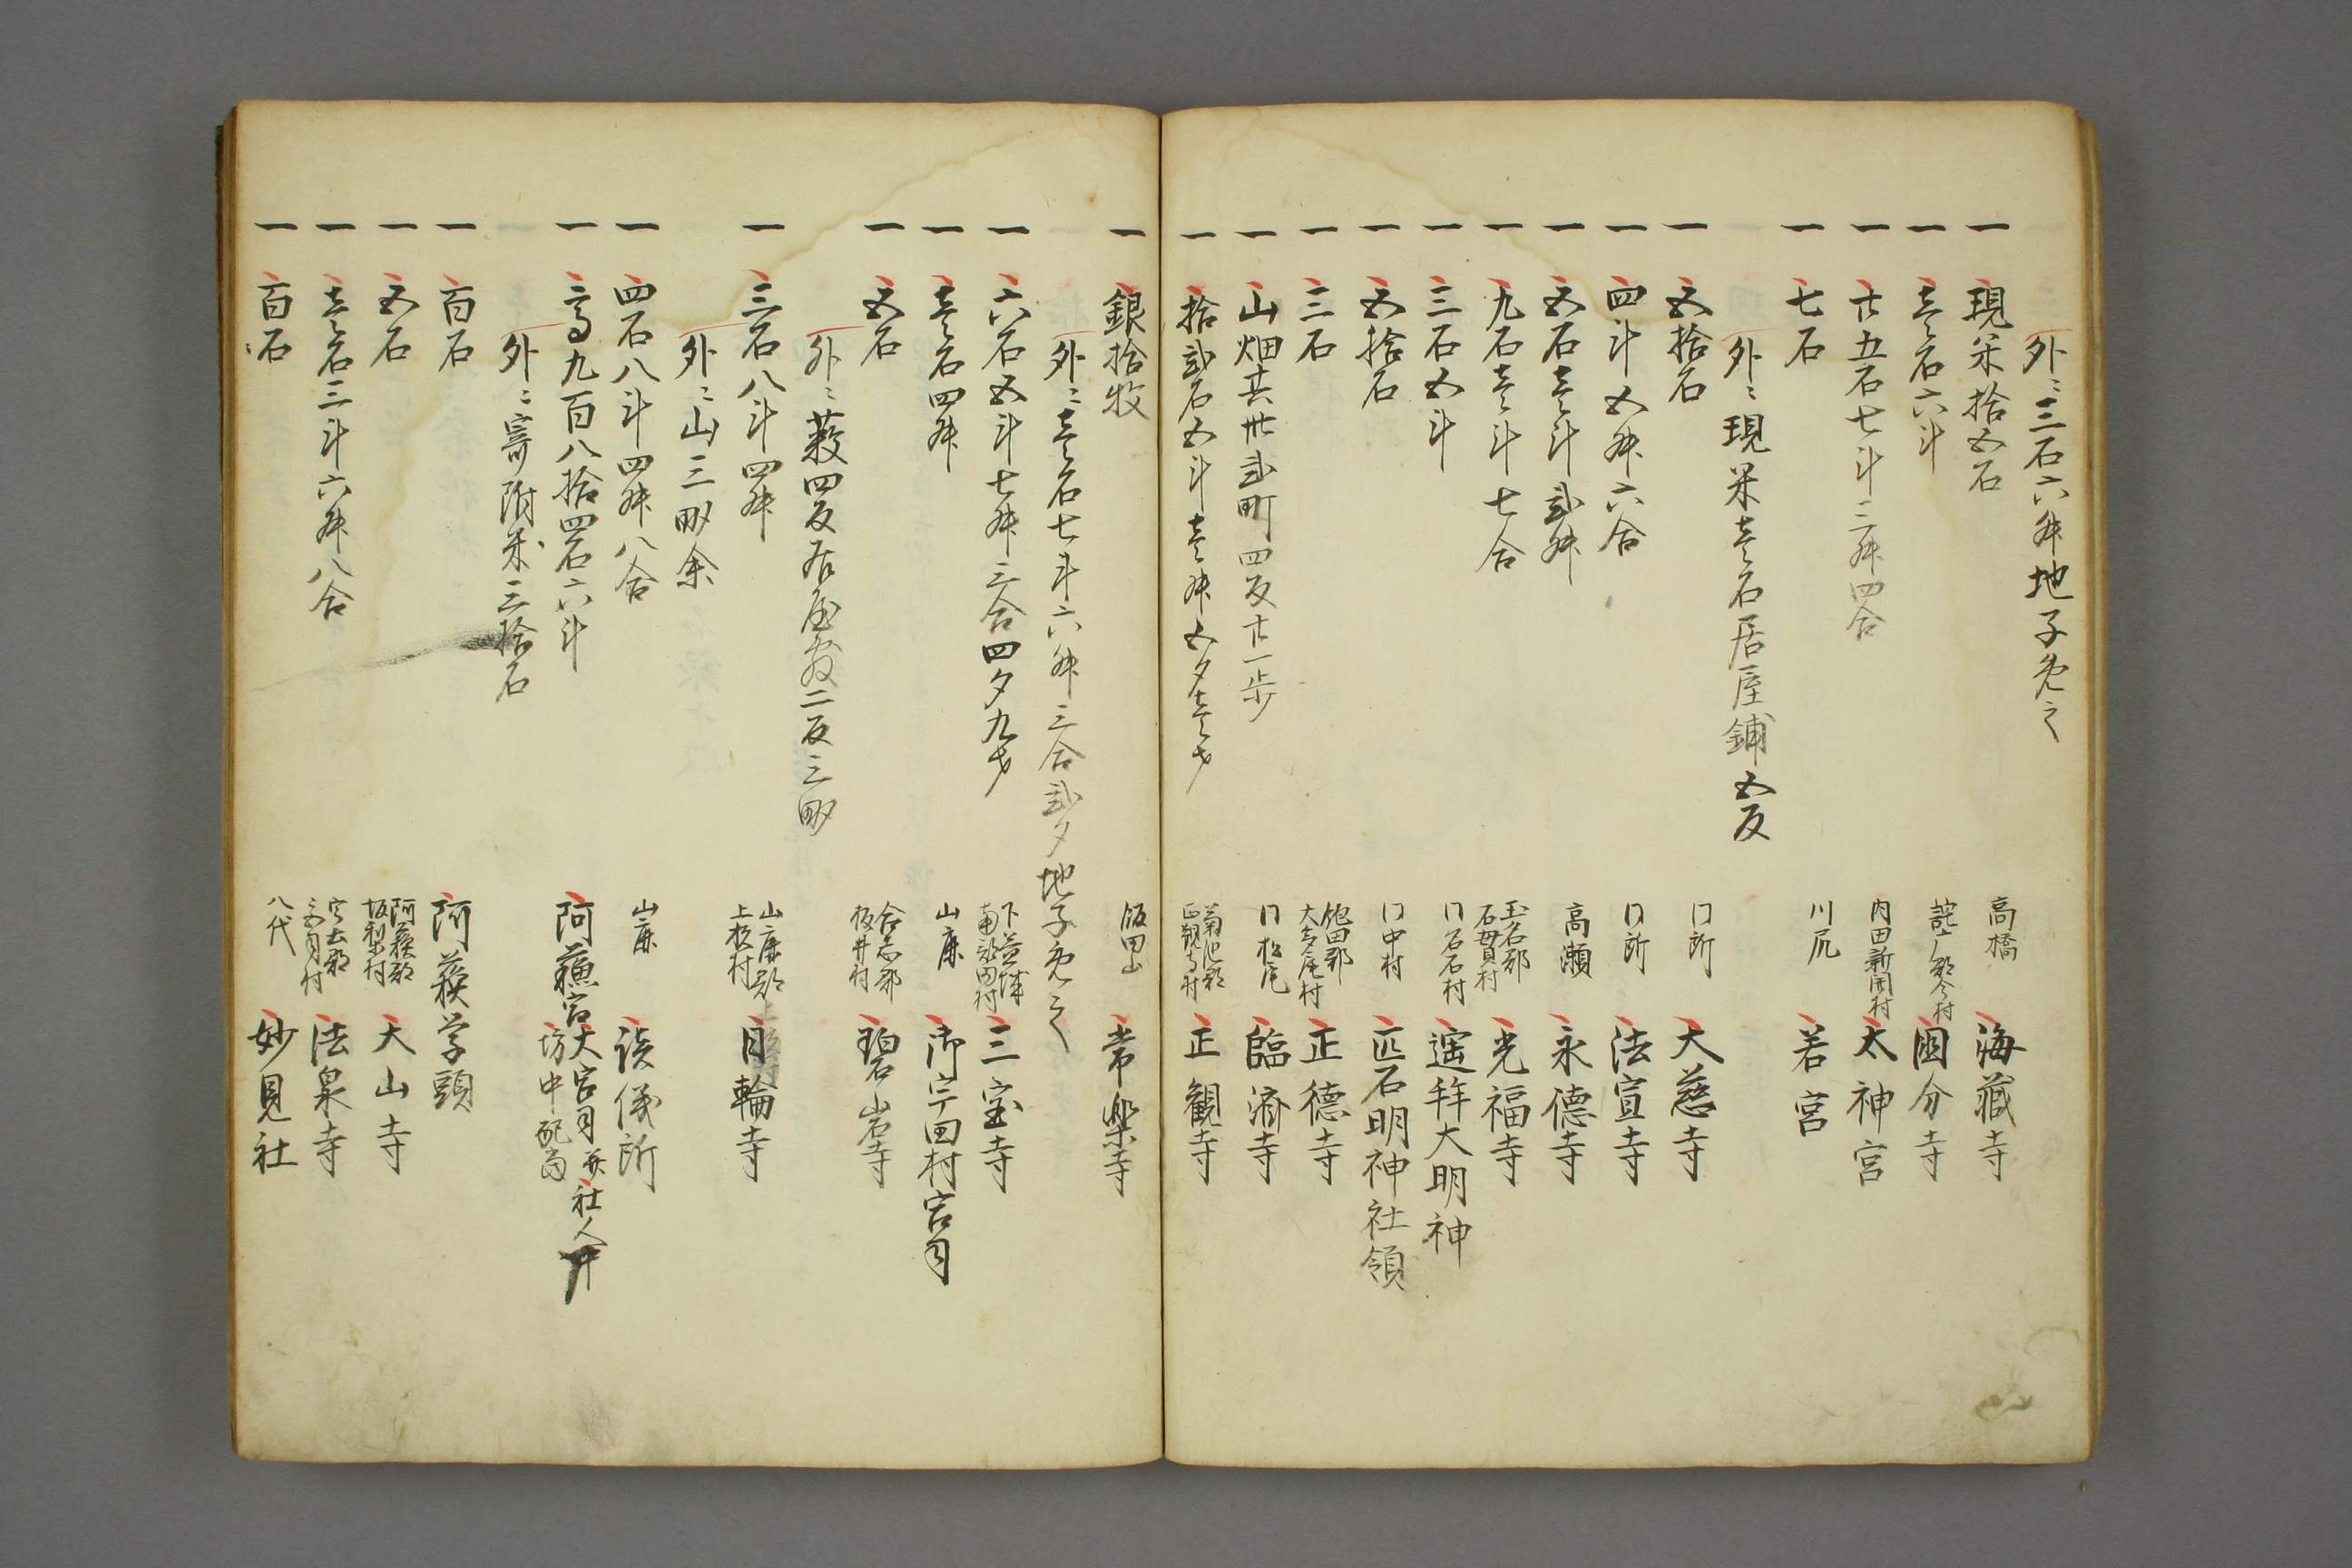 外ニ三石六舛地子免之
一 現米拾五石 高橋 海蔵寺
一 壱石六斗 今村 國分寺
一 廿五石七斗三舛四合 内田新開村 太神宮
一 七石 川尻 若宮
外ニ現米壱石居屋鋪五反
一 五拾石 同所 大慈寺
一 四斗五舛六合 同所 法宣寺
一 五石壱斗弐舛 高瀬 永德寺
一 九石壱斗七合 玉名郡石貫村 光福寺
一 三石五斗 同石石村 大明神
一 五拾石 同中村 疋石明神社領
一 三石 飽田郡大多尾村 正德寺
一 山畑共卅弐町四反廿一歩 同松尾 臨濟寺
一 拾弐石五斗壱舛五夕壱才 菊池郡正観寺村 正觀寺
一 銀拾枚 飯田山 常樂寺
外ニ壱石七斗六舛三合弐夕地子免之
一 六石五斗七舛三合四夕九才 下益城 三宝寺
一 壱石四舛 山鹿 御宇田村宮司
一 五石 合志郡板井村 碧岩寺
外ニ藪四反居屋敷二反三畝
一 三石八斗四舛 山鹿郡上板村 日輪寺
外ニ山三畝余
一 四石八斗四舛八合 山鹿 談儀所
一 高九百八拾四石六斗 阿蘓宮大宮司并社人并坊中配当
外ニ寄附米三拾石
一 百石 阿蘓学頭
一 五石 阿蘓郡坂梨村 大山寺
一 壱石三斗六舛八合 宇土郡 法泉寺
一 百石 八代 妙見社